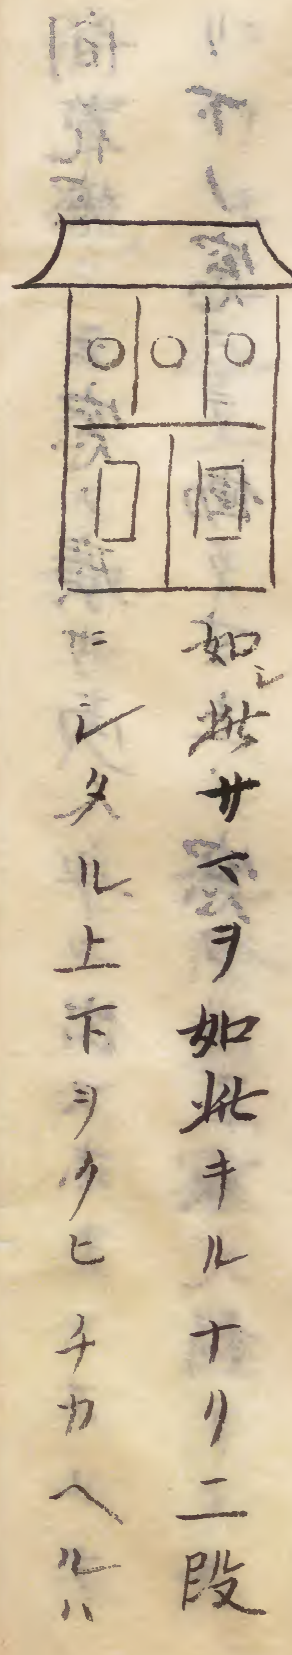 如シ此サマヲ如此キルナリ二段
ニシタル上下ヲクヒチカヘルハ